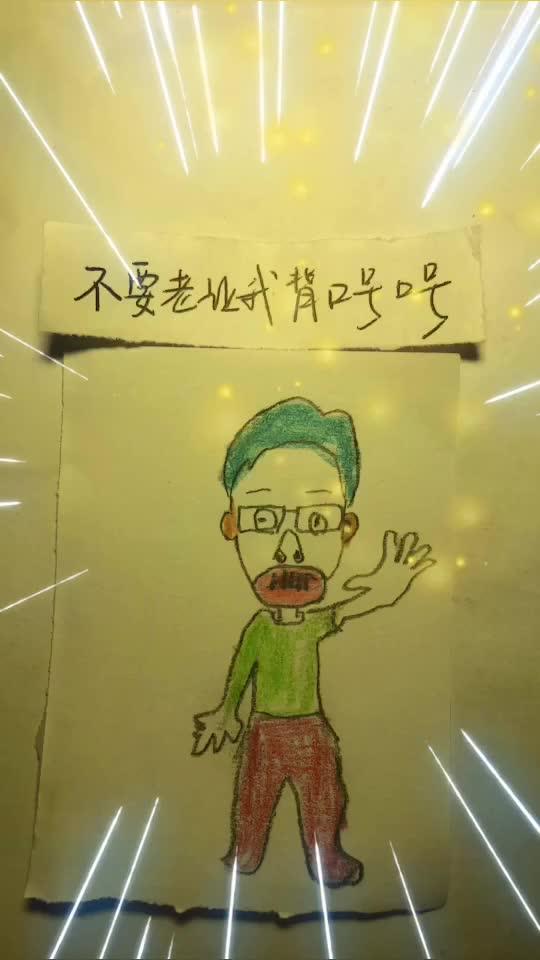 不要老让我背口号口号